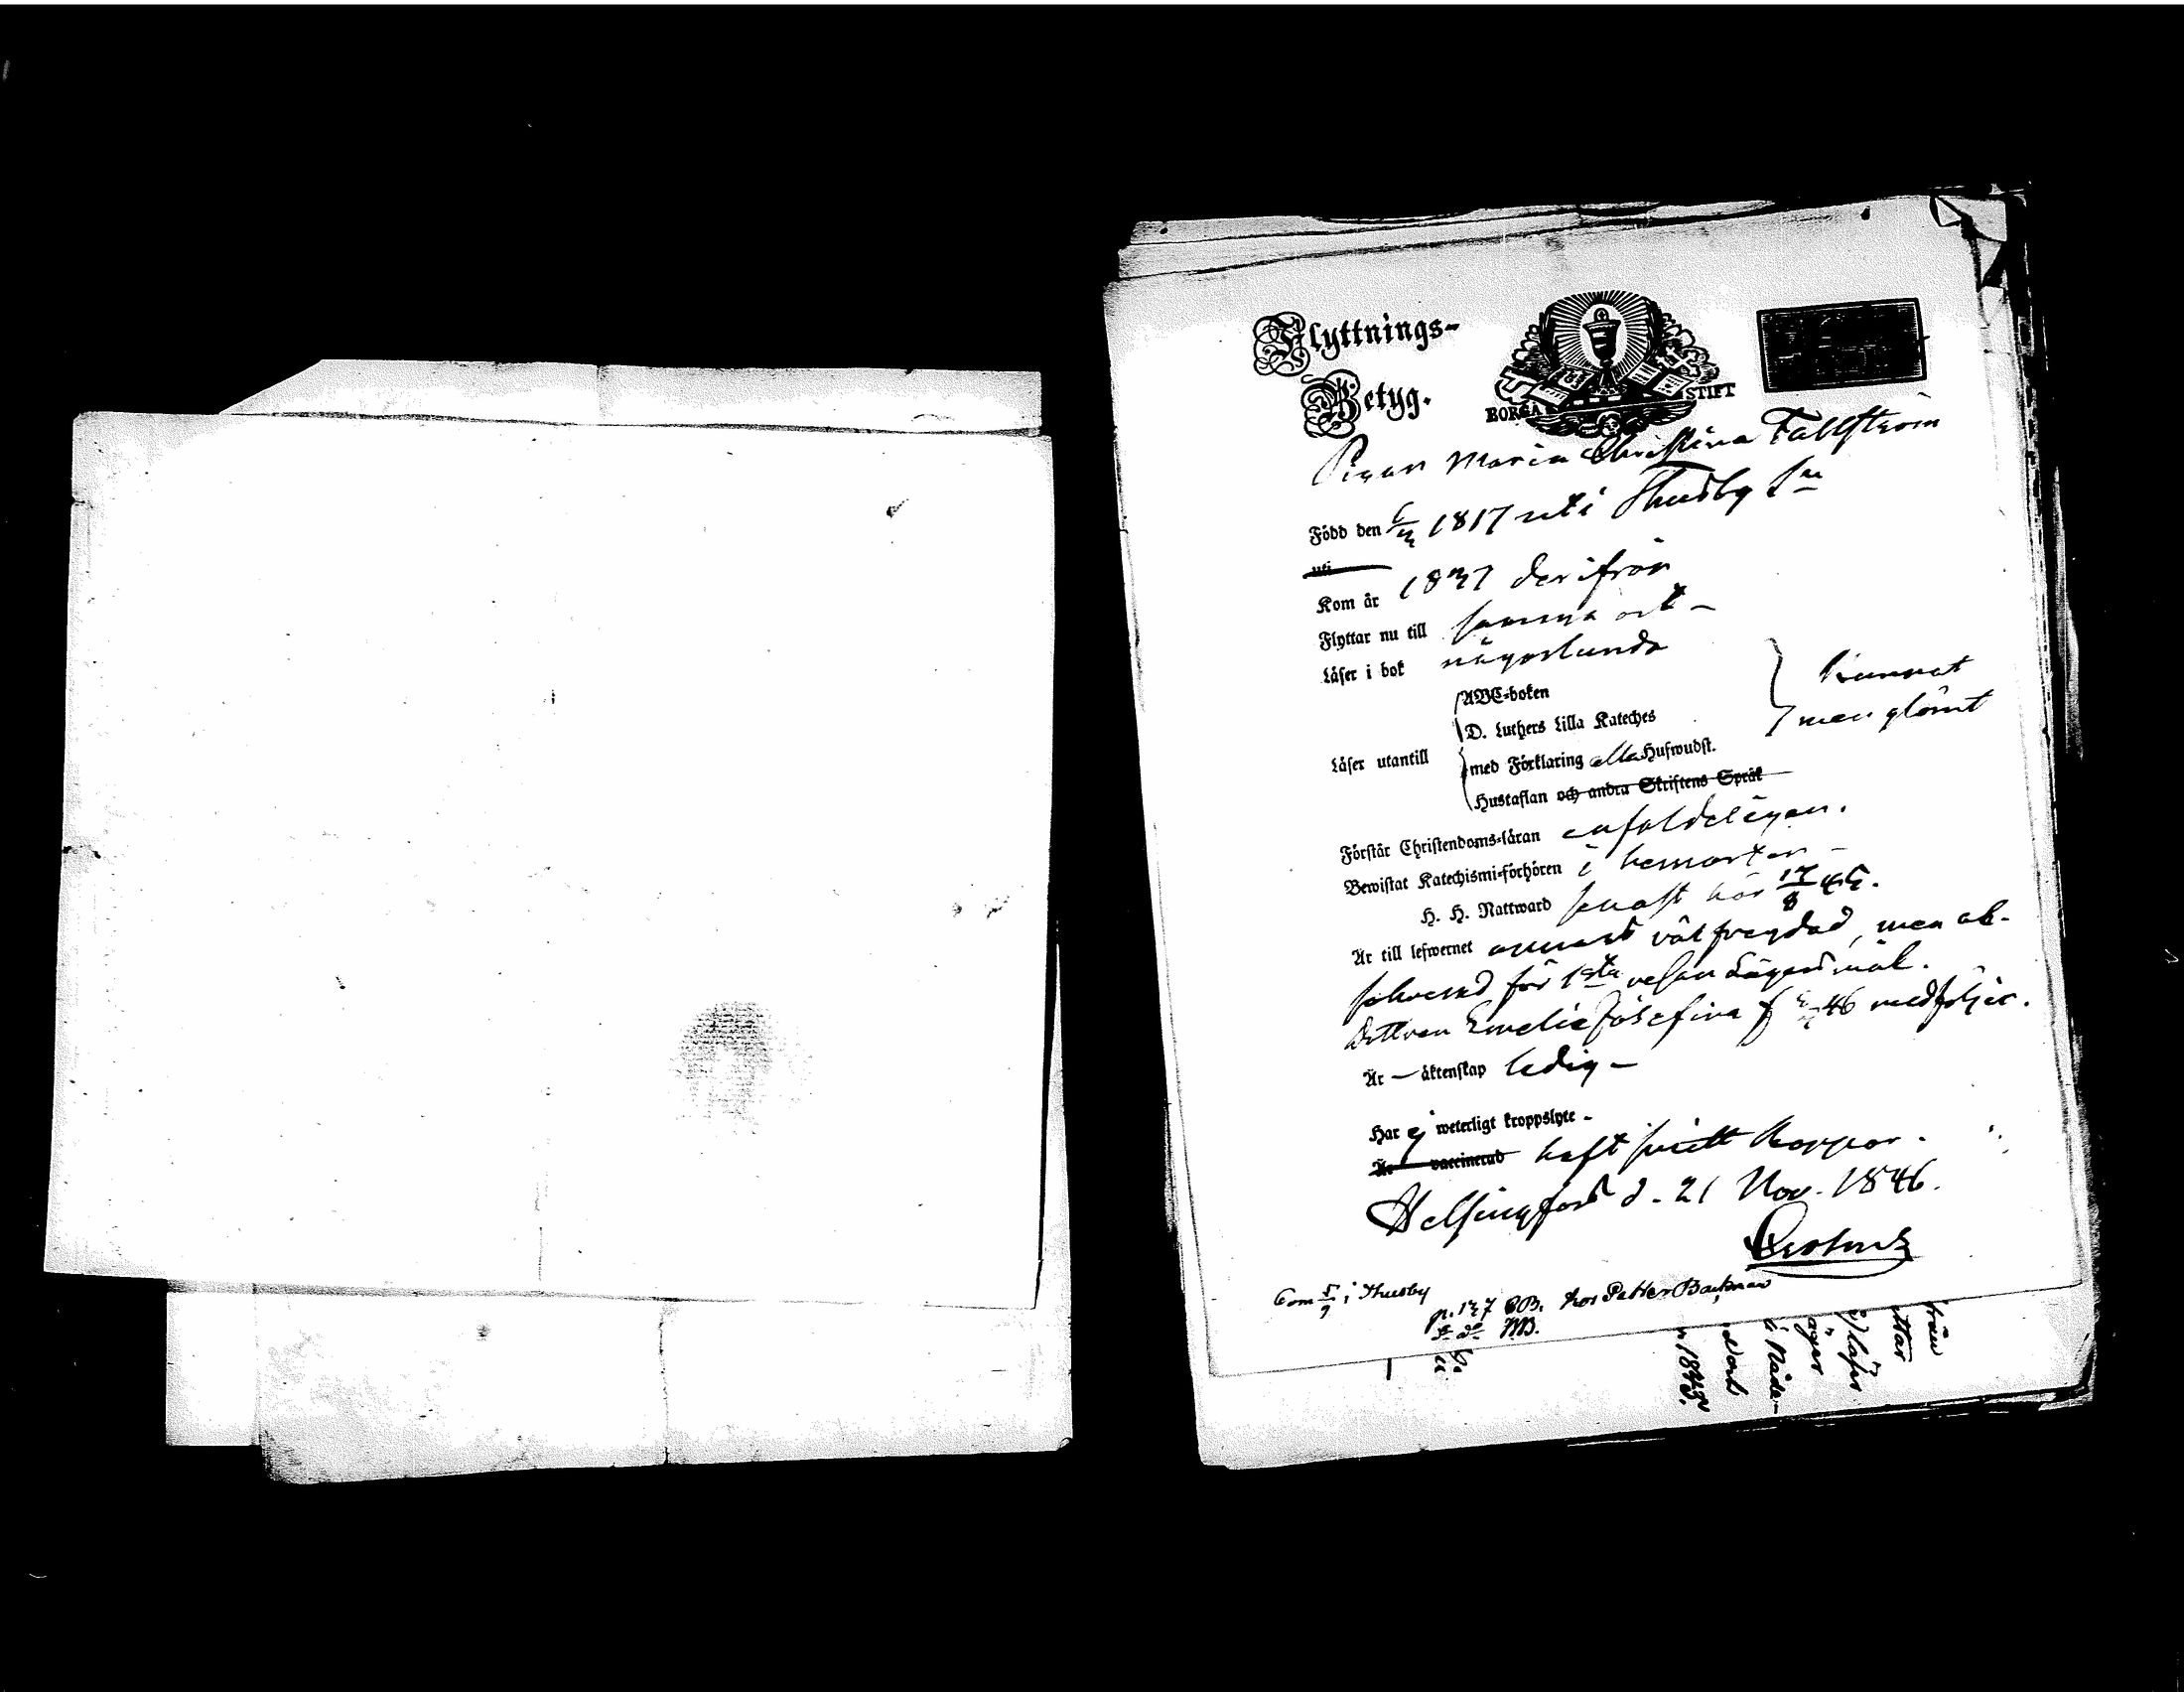 Flyttnings-
Betyg.
BORGÅ STIFT
Pigan Maria Christina Fallström
Född den 1817 uti Thusby Sn
uti
Kom år 1837 derifrån
Flyttar nu till samma ort -
Läser i bok någorlunda
Läser utantill
ABC-boken
D. Luthers Lilla Kateches
med Förklaring Hufwudst.
Hustaflan och andra Skriftens Språk
kunnat
men glömt
Förstår Christendoms-läran enfaldeligen.
Bewistat Katechismi-förhören i hemorten -
H. H. Nattward senast här 17/8 45.
Är till lefwernet annars välfrejdad, men ab-
solverad för 1sta resan Lägersmål.
Dottren Emelie Josefina f 46 medföljer.
Är — äktenskap ledig —
Har ej weterligt kroppslyte -
Är vaccinerad haft koppor.
Helsingfors d. 21 Nov. 1846.
Kom i Thusby p. 137 CB. hos Petter Backman
MB.
från
ttar
läser
äger
Nåde-
vards
1843.